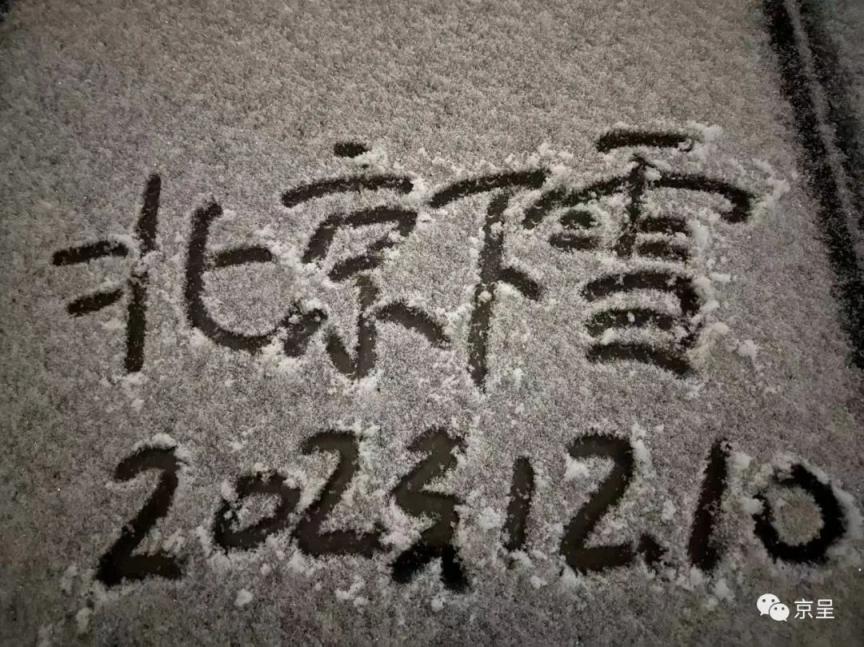 北京下雪
2023.12.10
京呈